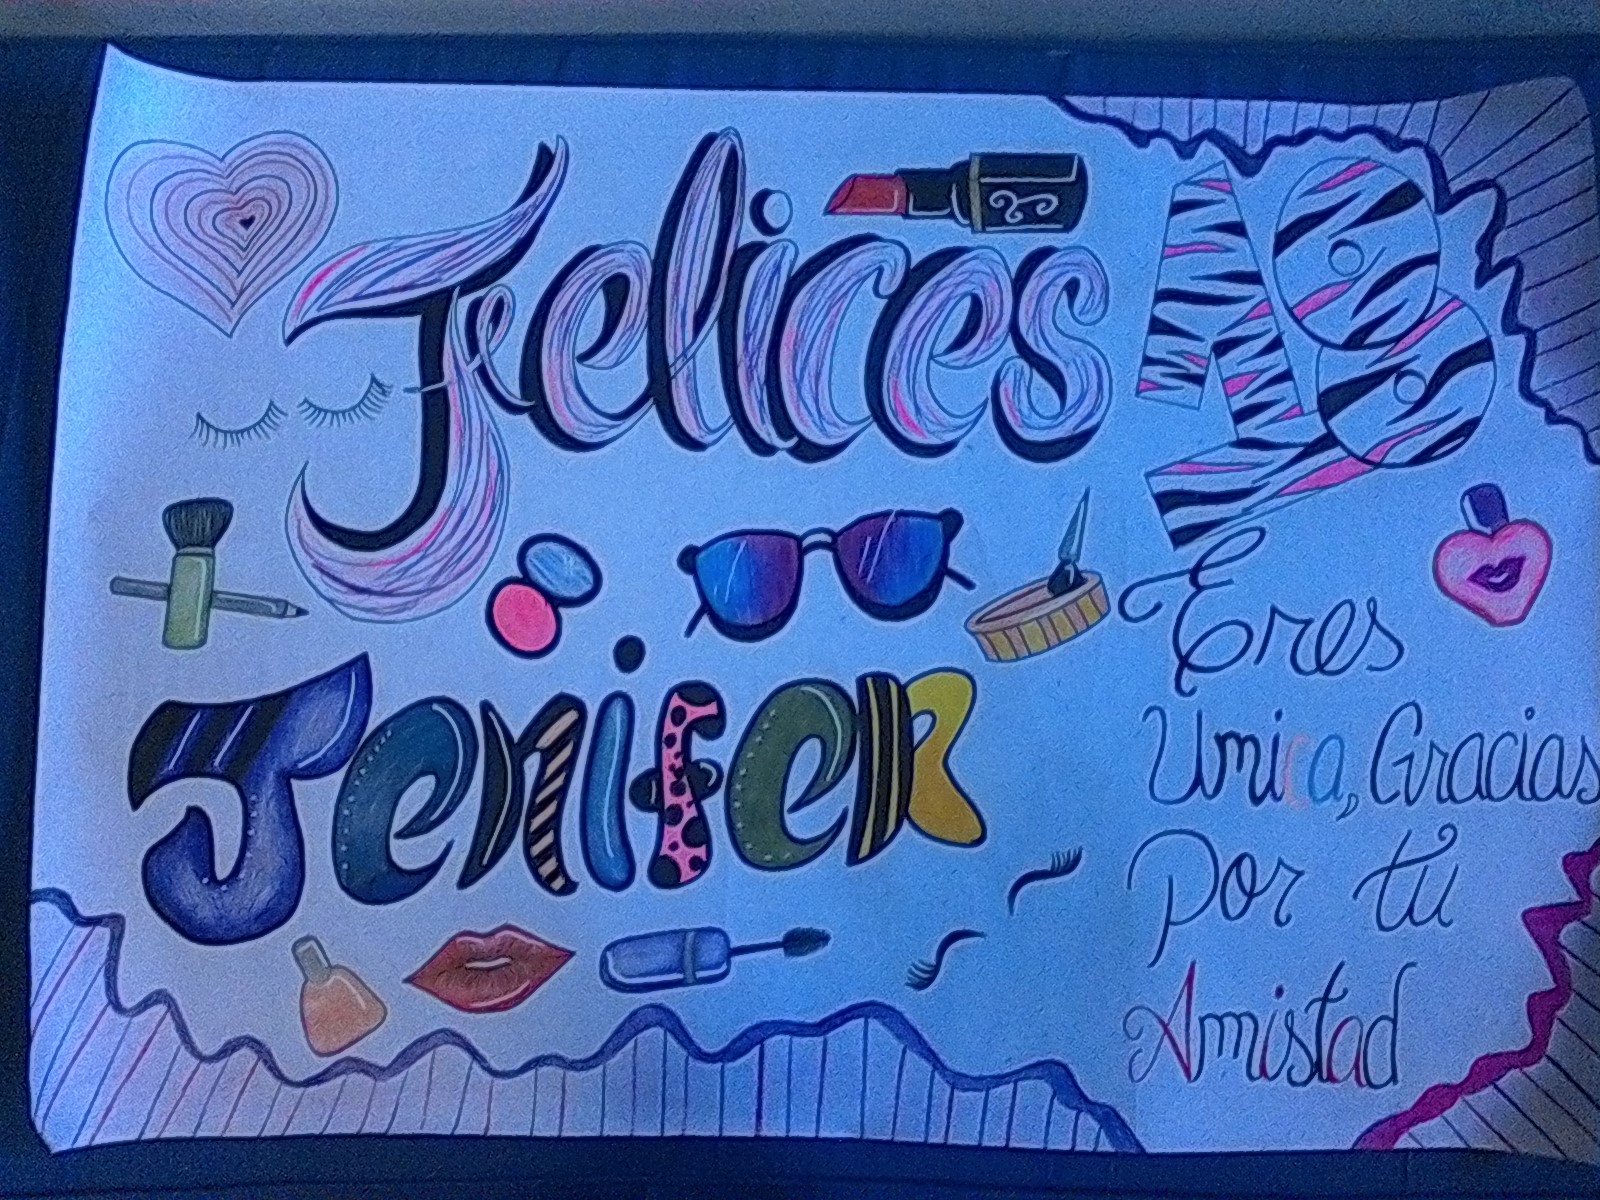 Felices 18
Jenifer
Eres
Unica, Gracias
Por tu
Amistad